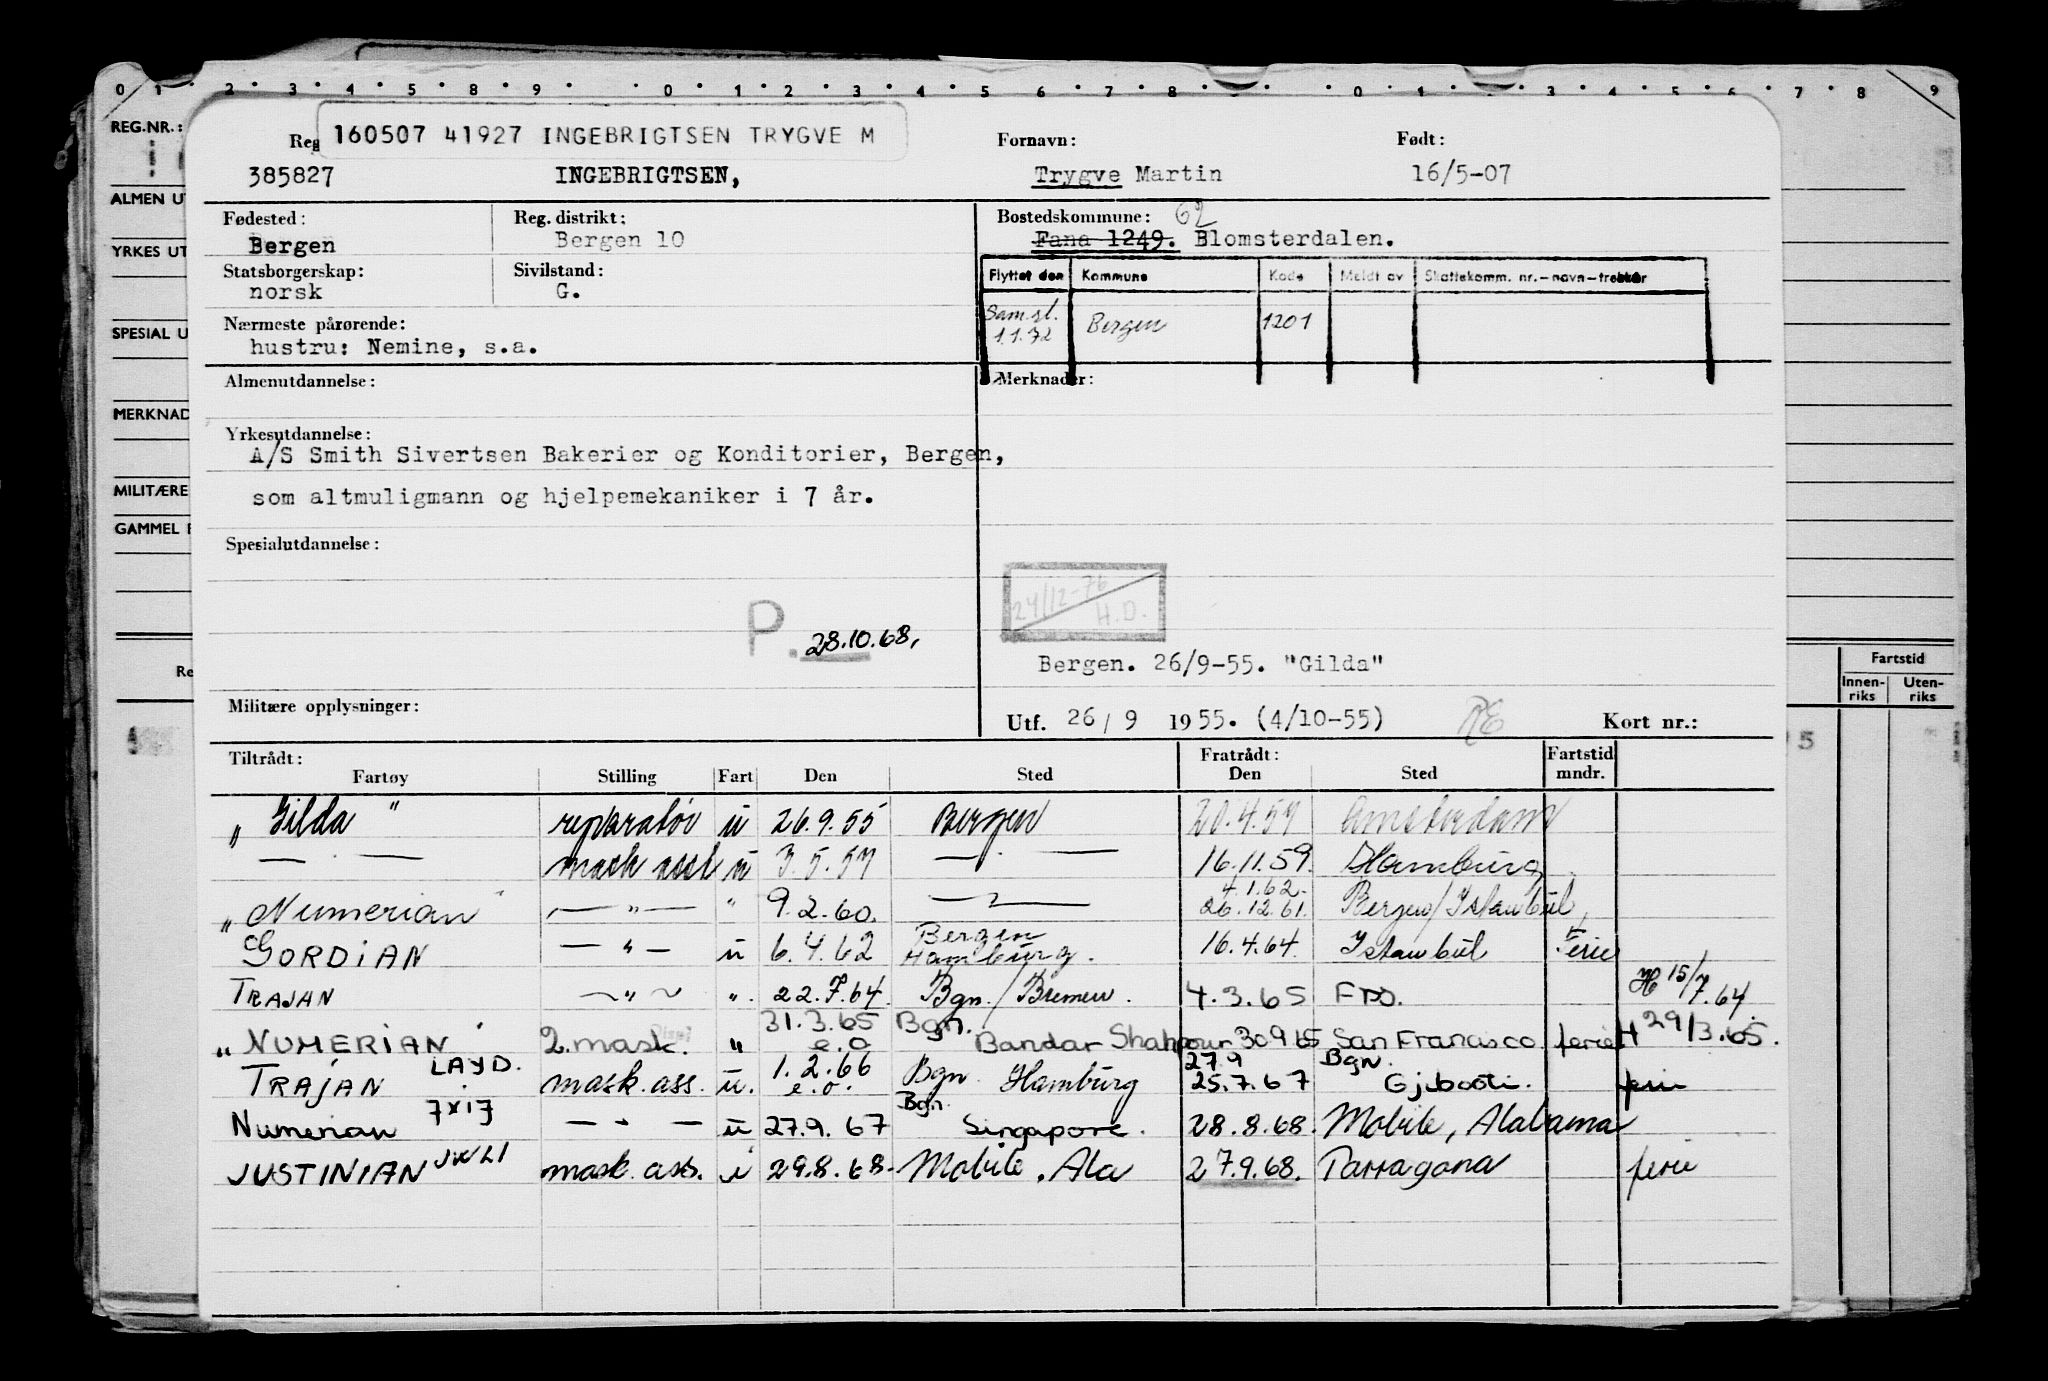 0 1 2 3 4 5 8 9 0 1 2 3 4 5 6 7 8 0 1 2 3 4 5 6 7 8 9
REG.NR.:
Reg
160507 41927 INGEBRIGTSEN TRYGVE M
Fornavn: Født:
385827 INGEBRIGTSEN, Trygve Martin 16/5-07
ALMEN UT
Fødested: Reg. distrikt: Bostedskommune: 62
Bergen Bergen 10 Fana 1249. Blomsterdalen.
YRKES UT
Statsborgerskap: Sivilstand:
norsk G.
Flyttet den Kommune Kode Meldt av Skattekomm. nr.-navn-trekkår
Sam.sl. 1.1.72 Bergen 1201
SPESIAL U
Nærmeste pårørende:
hustru: Nemine, s.a.
Almenutdannelse: Merknader:
MERKNAD
Yrkesutdannelse:
A/S Smith Sivertsen Bakerier og Konditorier, Bergen,
MILITÆRE
som altmuligmann og hjelpemekaniker i 7 år.
GAMMEL
Spesialutdannelse:
24/12-76 H.D.
P. 28.10.68.
Bergen. 26/9-55. "Gilda"
Re
Fartstid
Innen-riks Uten-riks
Militære opplysninger:
Utf. 26/9 1955. (4/10-55) Kort nr.:
5
Tiltrådt: Fratrådt: Fartstid
Fartøy Stilling Fart Den Sted Den Sted mndr.
"Gilda" reparatør u 26.9.55 Bergen 20.4.57 Amsterdam
— . — mask asst u 3.5.57 — . — 16.11.59 Hamburg
4.1.62.
"Numerian" — " — " 9.2.60. — " — 26.12.61. Bergen/Istanbul,
Bergen
GORDIAN — " — u 6.4.62 Hamburg. 16.4.64. Istanbul Ferie
TRAJAN — " — ". 22.7.64. Bgn./Bremen. 4.3.65 H 15/7.64.
31.3.65 Bgn.
"NUMERIAN" 2. mask. " e.o Bandar Shahpour 30965 San Francisco. ferie H 29/3.65.
LAYD. 1.2.66 27.9 Bgn.
TRAJAN mask. ass. u. e.o. Bgn. Hamburg 25.7.67 Gjibooti. ferie
JXIJ Bgn.
Numerian — " — u 27.9.67 Singapore. 28.8.68. Mobile, Alabama
JUSTINIAN JWLI mask. ass. i 29.8.68. Mobile, Ala 27.9.68. Tarragona ferie